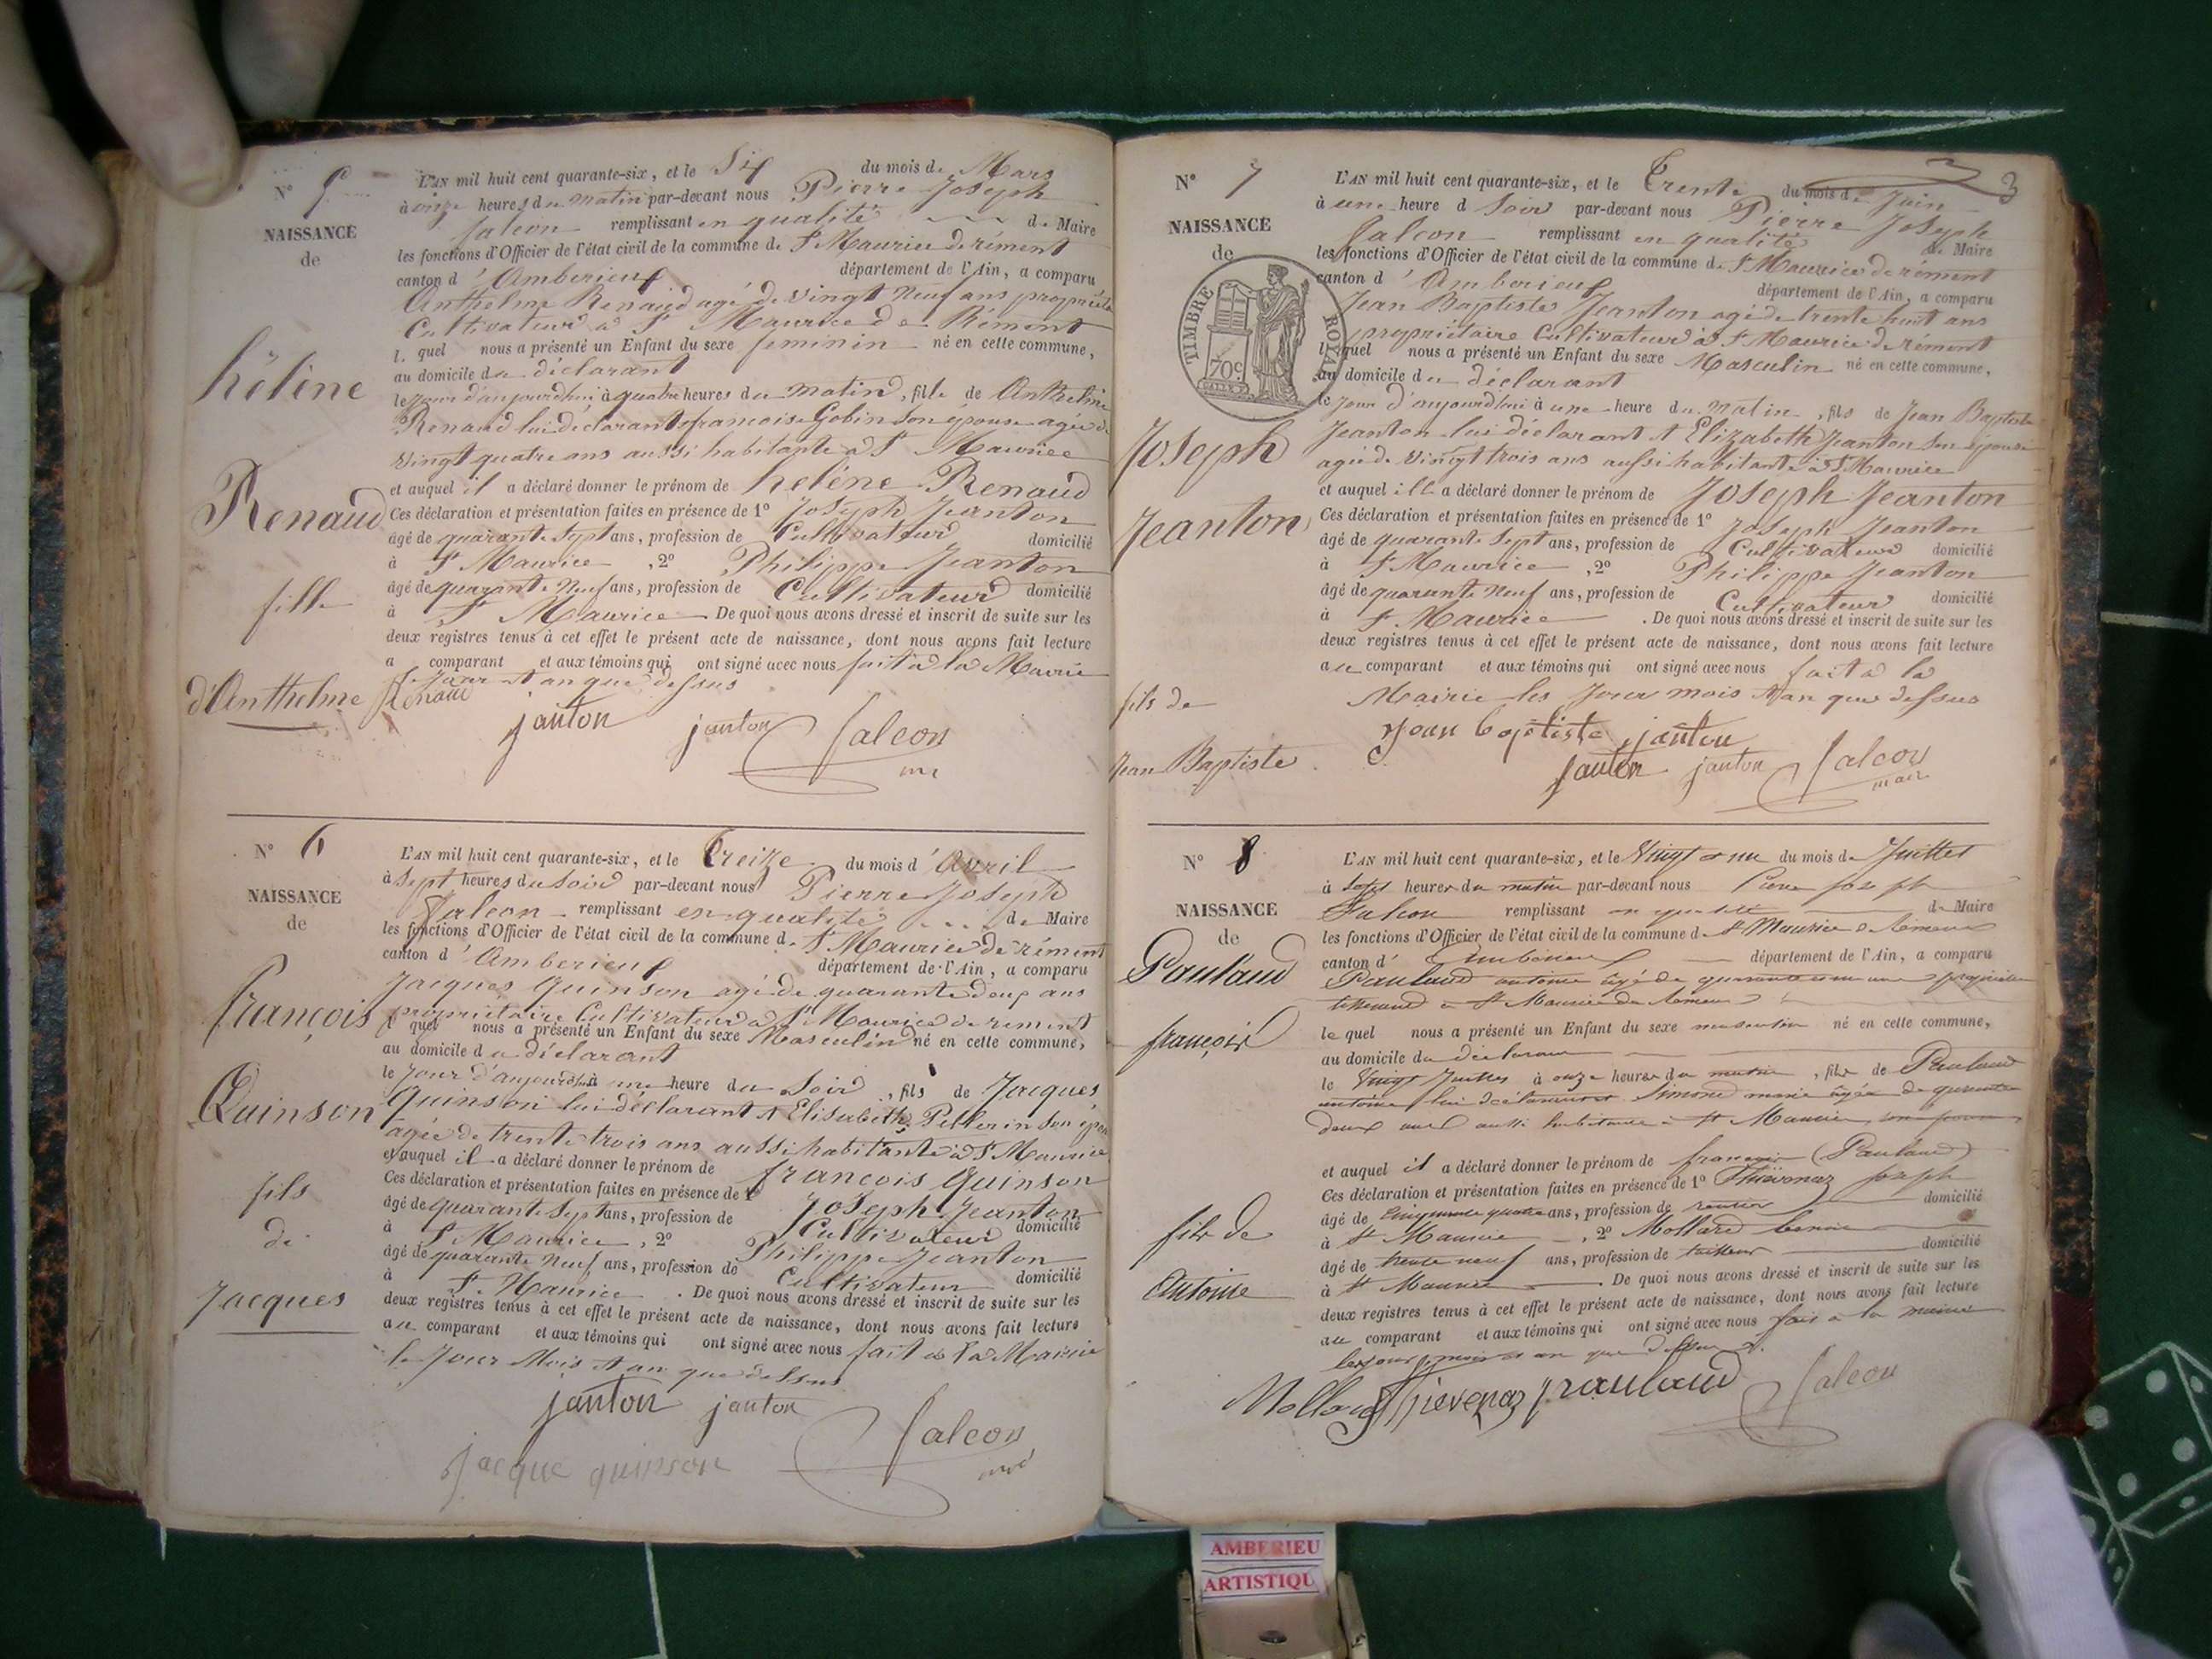 N° 5
NAISSANCE
de
hélène
Renaud
fille
d'Anthelme
L'AN mil huit cent quarante-six, et le Six du mois de Mars
à onze heures du matin par-devant nous Pierre Joseph
falcon remplissant en qualité de Maire
les fonctions d'Officier de l'état civil de la commune de St Maurice de rément
canton d'Amberieux département de l'Ain, a comparu
Anthelme Renaud agé de vingt neuf ans propriétaire
Cultivateur à St Maurice de Rément
lequel nous a présenté un Enfant du sexe feminin né en cette commune,
au domicile du déclarant
le jour d'aujourd'hui à quatre heures du matin, fille de Anthelme
Renaud lui déclarant et françoise Gobin son épouse agée de
vingt quatre ans aussi habitante à St Maurice
et auquel il a déclaré donner le prénom de heléne Renaud
Ces déclaration et présentation faites en présence de 1° Joseph Jeanton
âgé de quarante sept ans, profession de Cultivateur domicilié
à St Maurice, 2° Philippe Jeanton
âgé de quarante neuf ans, profession de Cultivateur domicilié
à St Maurice De quoi nous avons dressé et inscrit de suite sur les
deux registres tenus à cet effet le présent acte de naissance, dont nous avons fait lecture
a comparant et aux témoins qui ont signé avec nous fait à la Mairie
le jour et an que dessus
Renaud janton janton falcon
N° 6
NAISSANCE
de
françois
Quinson
fils
de
Jacques
L'AN mil huit cent quarante-six, et le Treize du mois d'Avril
à Sept heures du Soir par-devant nous Pierre Joseph
falcon remplissant en qualité de Maire
les fonctions d'Officier de l'état civil de la commune de St Maurice de rément
canton d'Amberieux département de l'Ain, a comparu
Jacques Quinson agé de quarante deux ans
propriétaire Cultivateur à St Maurice de rément
lequel nous a présenté un Enfant du sexe Masculin né en cette commune,
au domicile du déclarant
le jour d'aujourd'hui à une heure du Soir, fils de Jacques
Quinson lui déclarant et Elisabeth Pellerin son épouse
agée de trente trois ans aussi habitante à St Maurice
et auquel il a déclaré donner le prénom de françois Quinson
Ces déclaration et présentation faites en présence de 1° Joseph Jeanton
âgé de quarante sept ans, profession de Cultivateur domicilié
à St Maurice, 2° Philippe Jeanton
âgé de quarante neuf ans, profession de Cultivateur domicilié
à St Maurice. De quoi nous avons dressé et inscrit de suite sur les
deux registres tenus à cet effet le présent acte de naissance, dont nous avons fait lecture
au comparant et aux témoins qui ont signé avec nous fait à la Mairie
le jour Mois et an que dessus
janton janton falcon
jacque quinson
3
N° 7
NAISSANCE
de
TIMBRE ROYAL
70c
Joseph
Jeanton
fils de
Jean Baptiste
L'AN mil huit cent quarante-six, et le Trente du mois de Juin
à une heure d Soir par-devant nous Pierre Joseph
falcon remplissant en qualité de Maire
les fonctions d'Officier de l'état civil de la commune de St Maurice de rément
canton d'Amberieux département de l'Ain, a comparu
Jean Baptiste Jeanton agé de trente huit ans
propriétaire Cultivateur à St Maurice de rement
lequel nous a présenté un Enfant du sexe Masculin né en cette commune,
au domicile du déclarant
le jour d'aujourd'hui à une heure du matin, fils de Jean Baptiste
Jeanton lui déclarant et Elizabeth Jeanton son épouse
agée de vingt trois ans aussi habitante à St Maurice
et auquel il a déclaré donner le prénom de Joseph Jeanton
Ces déclaration et présentation faites en présence de 1° Joseph Jeanton
âgé de quarante sept ans, profession de Cultivateur domicilié
à St Maurice, 2° Philippe Jeanton
âgé de quarante neuf ans, profession de Cultivateur domicilié
à St Maurice. De quoi nous avons dressé et inscrit de suite sur les
deux registres tenus à cet effet le présent acte de naissance, dont nous avons fait lecture
au comparant et aux témoins qui ont signé avec nous fait à la
Mairie les jour mois et an que dessus
jean baptiste janton
janton janton falcon
maire
N° 8
NAISSANCE
de
Paulaud
françois
fils de
Antoine
L'AN mil huit cent quarante-six, et le Vingt et un du mois de Juillet
à Sept heures du matin par-devant nous Pierre joseph
Falcon remplissant en qualité de Maire
les fonctions d'Officier de l'état civil de la commune de St Maurice de Rémens
canton d'Amberieux département de l'Ain, a comparu
Paulaud antoine âgé de quarante et un ans propriétaire
tisserand à St Maurice de Rémens
le quel nous a présenté un Enfant du sexe masculin né en cette commune,
au domicile du déclarant
le Vingt Juillet à onze heures du matin, fils de Paulaud
antoine lui déclarant et Simond marie âgée de quarante
deux ans aussi habitante à St Maurice son épouse
et auquel il a déclaré donner le prénom de françois (Paulaud)
Ces déclaration et présentation faites en présence de 1° Thievenaz joseph
âgé de Cinquante quatre ans, profession de rentier domicilié
à St Maurice, 2° Mollard
âgé de trente neuf ans, profession de tailleur domicilié
à St Maurice. De quoi nous avons dressé et inscrit de suite sur les
deux registres tenus à cet effet le présent acte de naissance, dont nous avons fait lecture
au comparant et aux témoins qui ont signé avec nous fait à la mairie
les jour, mois et an que dessus
Mollard Thievenaz paulaud falcon
AMBERIEU
ARTISTIQU